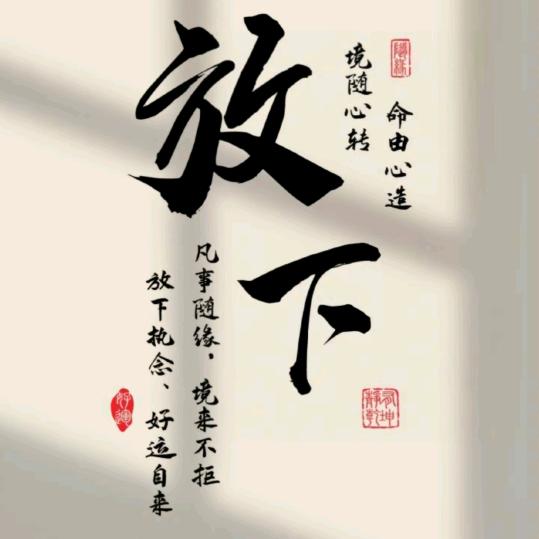 放下
隨緣
命由心造
境随心转
凡事随缘，境来不拒
放下执念、好运自来
好運